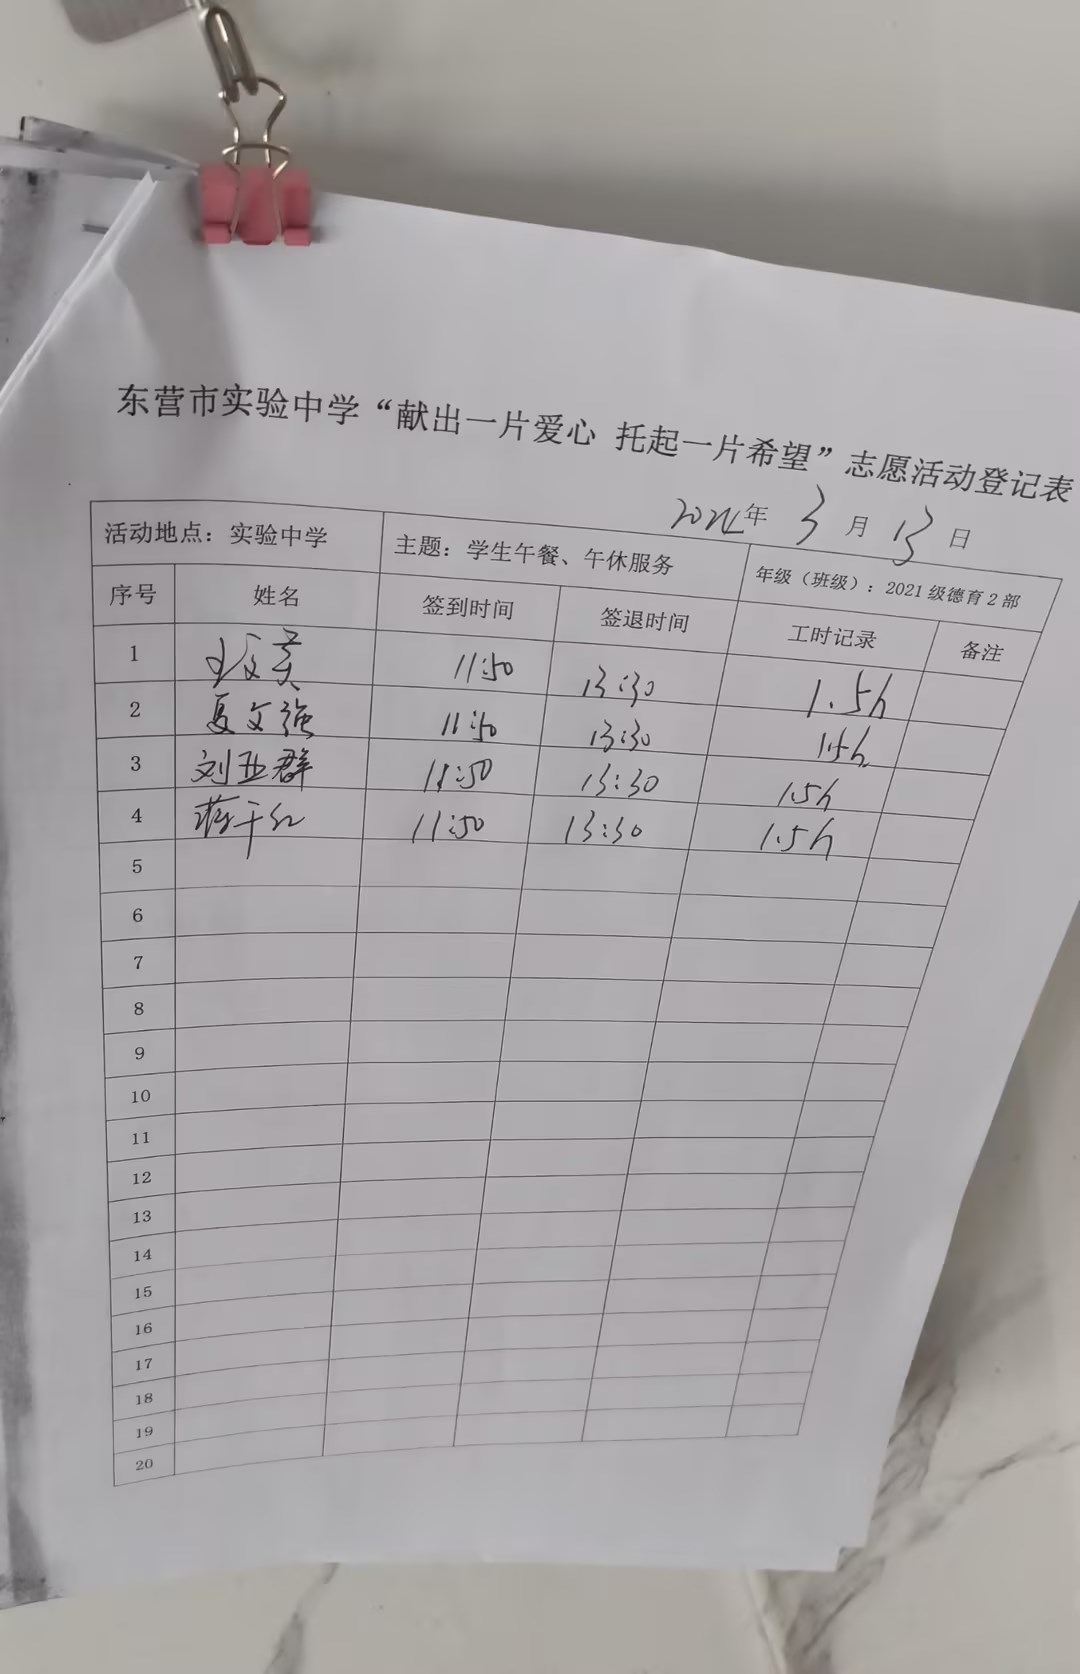 东营市实验中学“献出一片爱心 托起一片希望”志愿活动登记表
2024年 3月 13日
活动地点：实验中学 主题：学生午餐、午休服务 年级（班级）：2021级德育2部
序号 姓名 签到时间 签退时间 工时记录 备注
1 11:50 13:30 1.5h
2 夏文强 11:50 13:30 1.5h
3 刘亚群 11:50 13:30 1.5h
4 11:50 13:30 1.5h
5
6
7
8
9
10
11
12
13
14
15
16
17
18
19
20